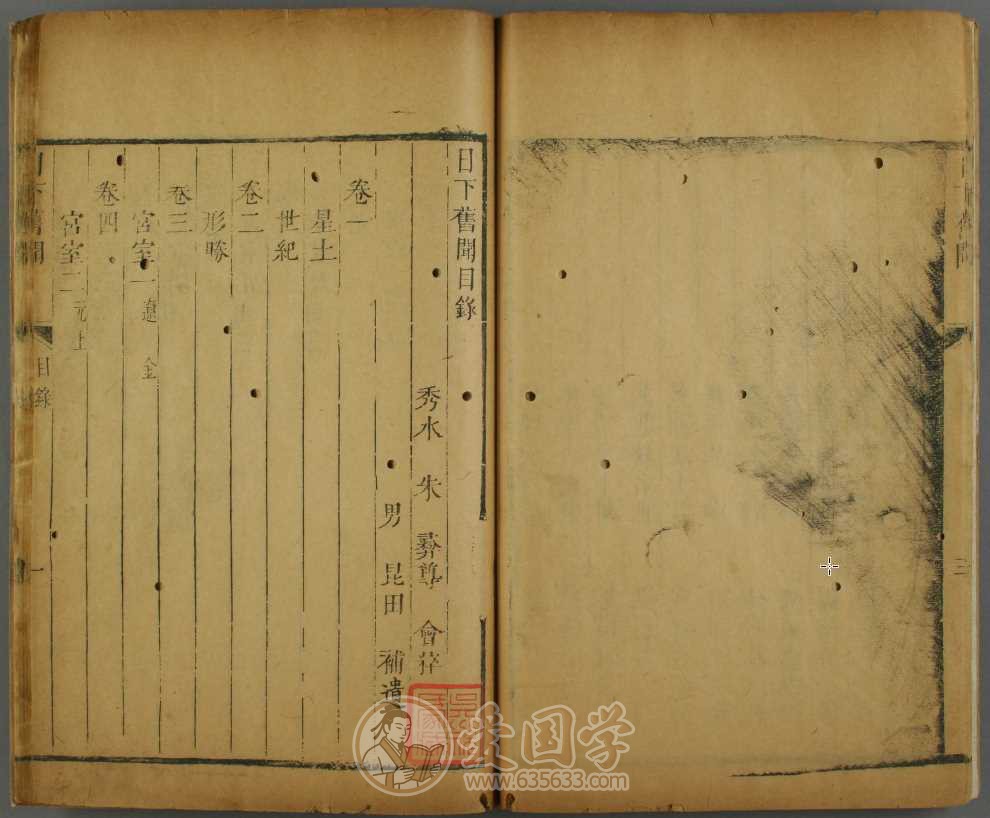 日下舊聞目錄
秀水 朱 彝尊 會萃
男 昆田 補遺
卷一
星土
世紀
卷二
形勝
卷三
宮室一 遼 金
卷四
宮室二 元上
目錄
一
三
爱国学
www.635633.com